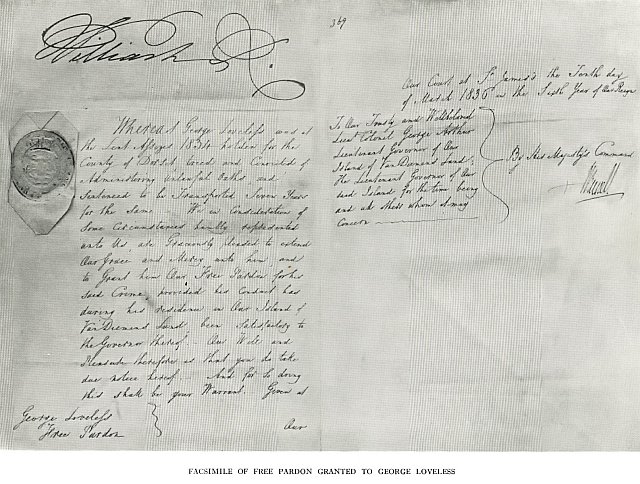 William R.
Whereas George Loveless was at
the Lent Assizes 1834 holden for the
County of Dorset tried and Convicted of
Administering unlawful Oaths and
Sentenced to be Transported Seven Years
for the same. We in Consideration of
Some Circumstances humbly represented
unto Us are Graciously pleased to extend
Our Grace and Mercy unto him and
to Grant him Our Free Pardon for his
said Crime provided his Conduct has
during his residence in Our Island of
Van Diemens Land been Satisfactory to
the Governor thereof... Our Will and
Pleasure therefore is that you do take
due notice hereof... And for so doing
this shall be your Warrant. Given at
Our
George Loveless
Free Pardon
369
Our Court at St. James's the Tenth day
of March 1836 in the Sixth Year of Our Reign
To Our Trusty and Wellbeloved
Lieut Colonel George Arthur
Lieutenant Governor of Our
Island of Van Diemens Land;
The Lieutenant Governor of Our
said Island for the time being
and all others whom it may
Concern
By His Majesty's Command
FACSIMILE OF FREE PARDON GRANTED TO GEORGE LOVELESS